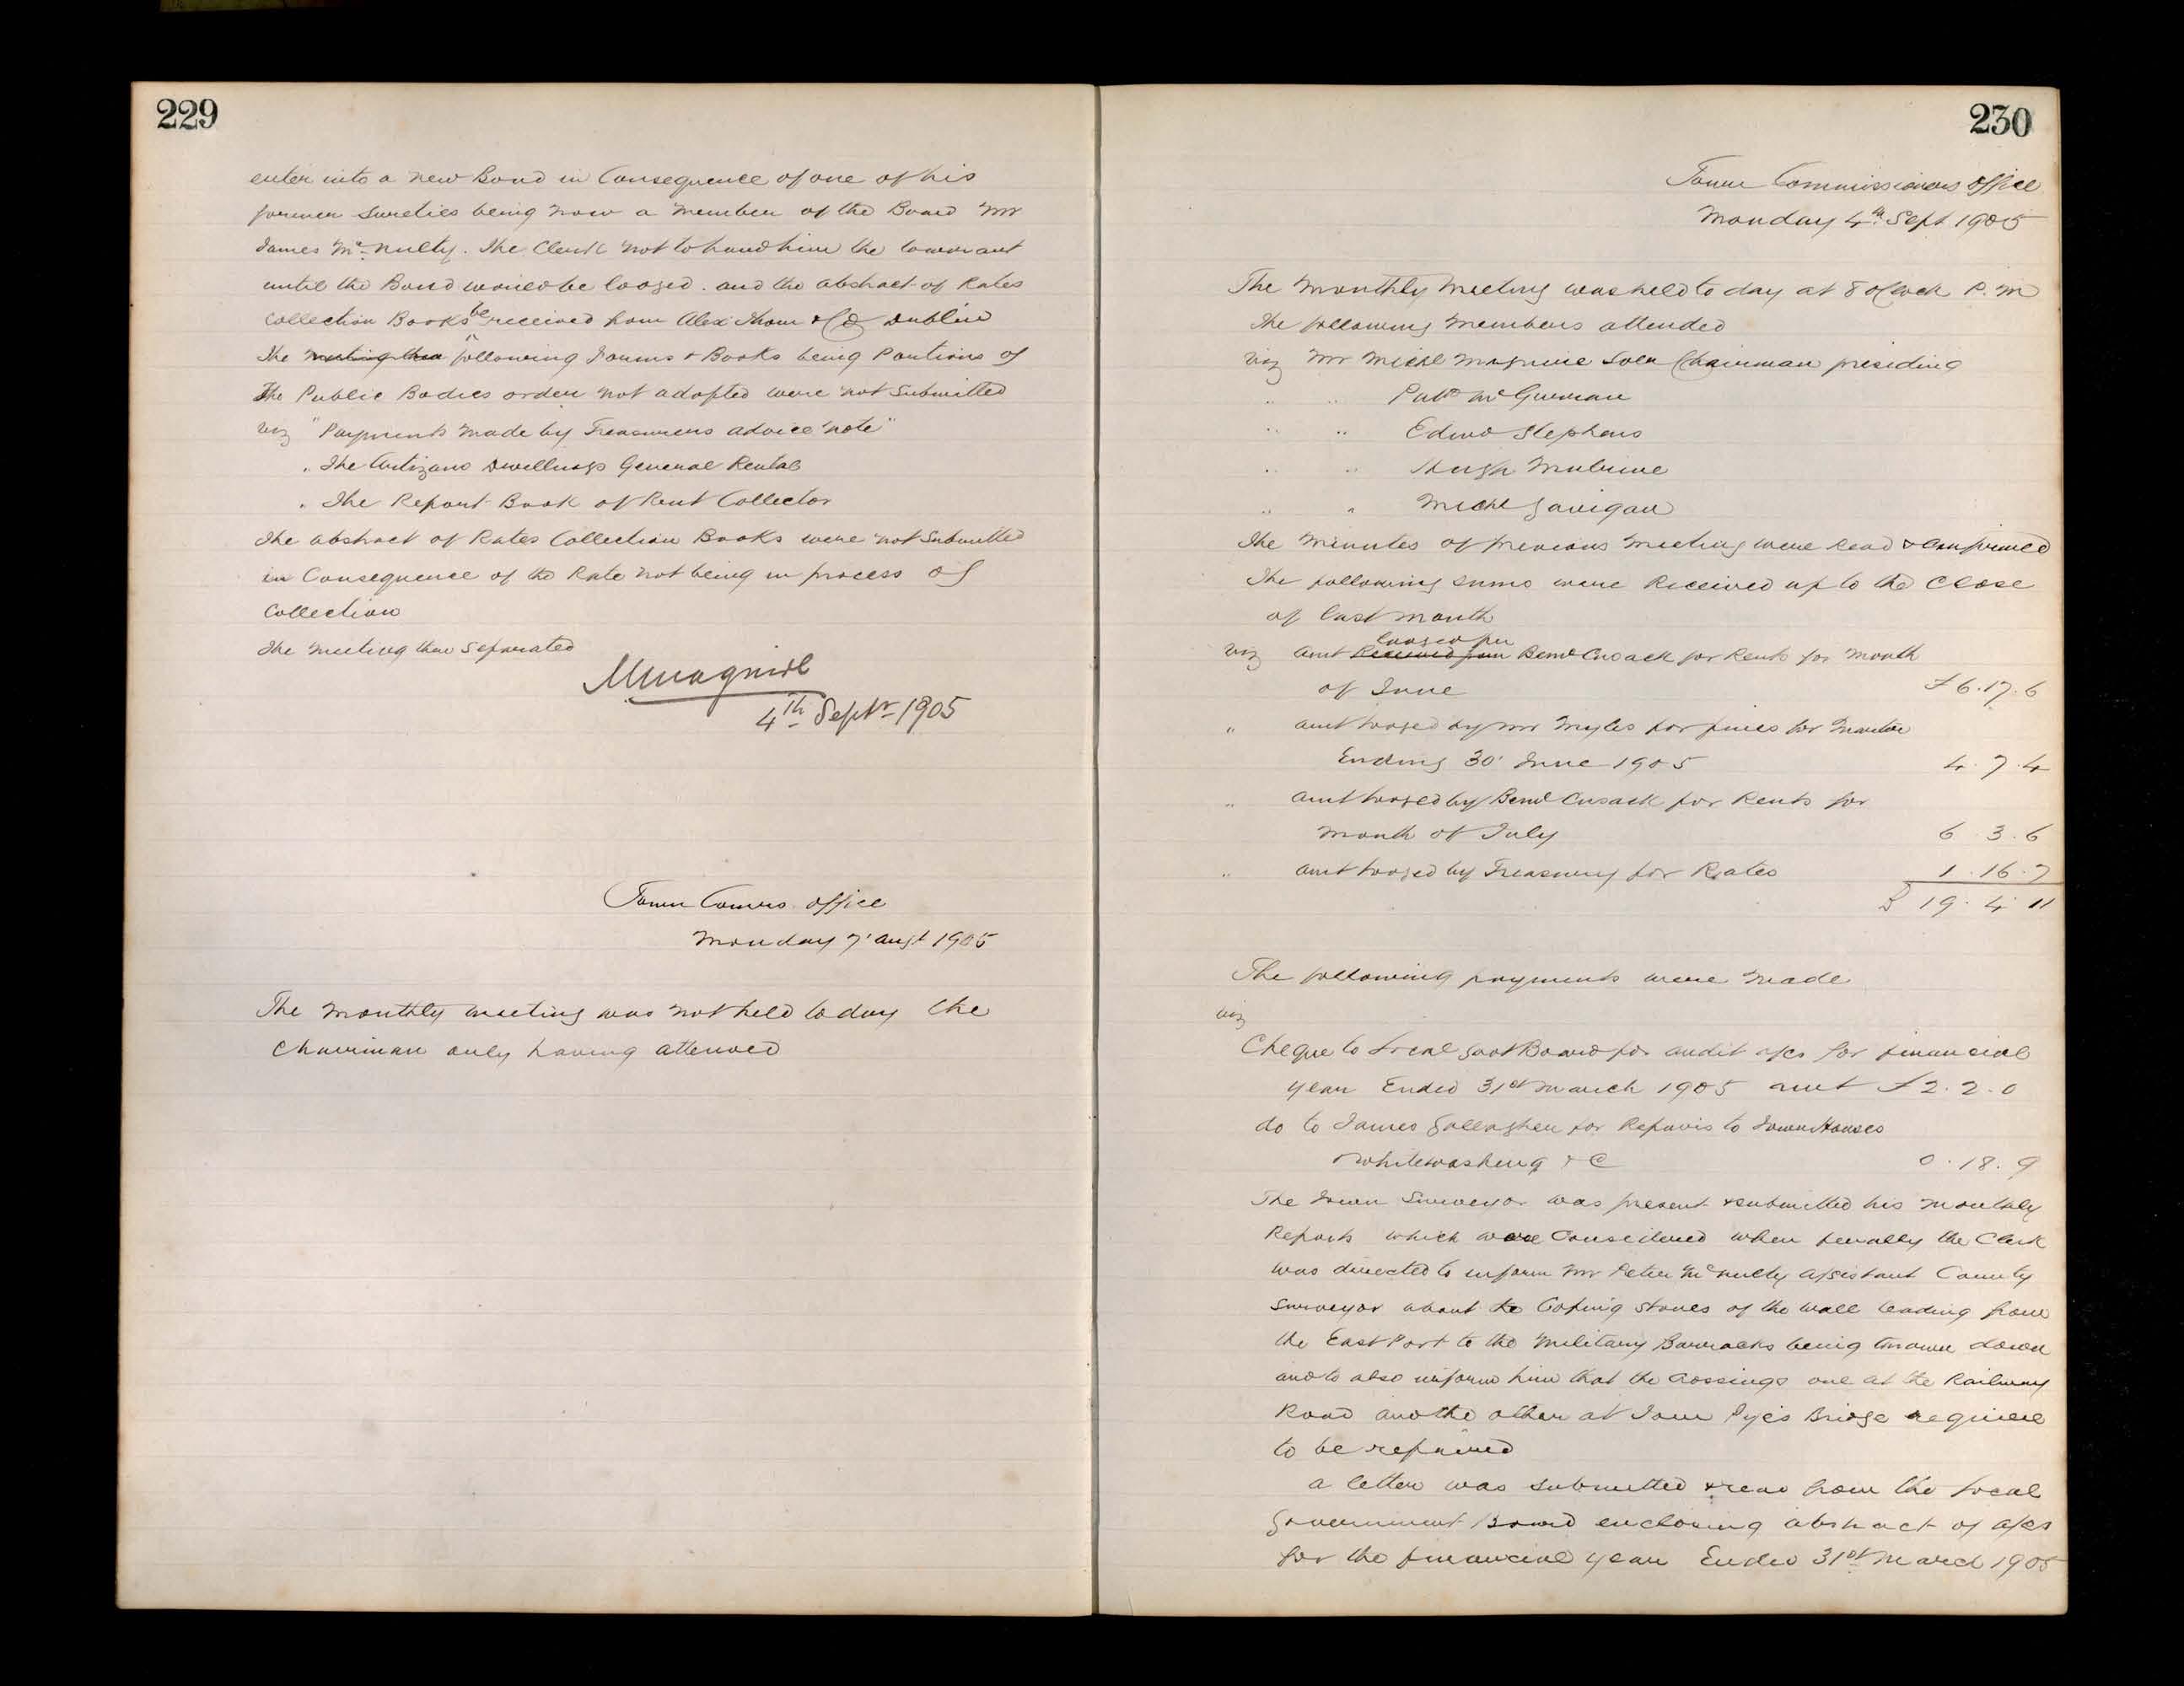 229
enter into a new Bond in Consequence of one of his
former Sureties being now a member of the Board Mr
James McNulty. The Clerk not to hand him the warrant
until the Bond would be lodged. and the abstract of Rates
Collection Books be received from Alex Thom & Co Dublin
The meeting then following Forms & Books being Portions of
The Public Bodies order not adopted were not Submitted
viz "Payments made by Treasurers advice note"
" The Artizans Dwellings General Rental
" The Report Book of Rent Collector
The abstract of Rates Collection Books were not Submitted
in Consequence of the Rate not being in process of
Collection
The meeting then Separated
MMaguire
4th Septr 1905
Town Comrs. office
Monday 7' Augt 1905
The monthly meeting was not held to day the
Chairman only having attended
230
Town Commissioners Office
Monday 4th Sept 1905
The Monthly Meeting was held to day at 8 oClock P.M
The following Members attended
viz Mr Michl Maguire Solr Chairman presiding
" " Patk McGurran
" " Edwd Stephens
" " Hugh Mulrine
" " Michl Gavigan
The Minutes of previous Meeting were Read & Confirmed
The following sums were Received up to the Close
of last month
lodged per
viz Amt Received from Bernd Cusack for Rents for Month
of June £6.17.6
" amt lodged by Mr Myles for fines for Quarter
Ending 30' June 1905 4.7.4
" amt lodged by Bernd Cusack for Rents for
Month of July 6.3.6
" amt lodged by Treasury for Rates 1.16.7
£ 19.4.11
The following payments were made
viz
Cheque to Local Govt Board for audit a/cs for financial
year Ended 31st March 1905 amt £2.2.0
do to James Gallagher for Repairs to Town Houses
& whitewashing &C 0.18.9
The Town Surveyor was present & submitted his monthly
Reports which were Considered when finally the Clerk
was directed to inform Mr Peter McNulty Assistant County
Surveyor about the Coping Stones of the wall leading from
the East Port to the Military Barracks being thrown down
and to also inform him that the Crossings one at the Railway
Road and the other at Tom Pye's Bridge require
to be repaired
a letter was submitted & read from the Local
Government Board enclosing abstract of a/cs
for the financial year Ended 31st March 1905